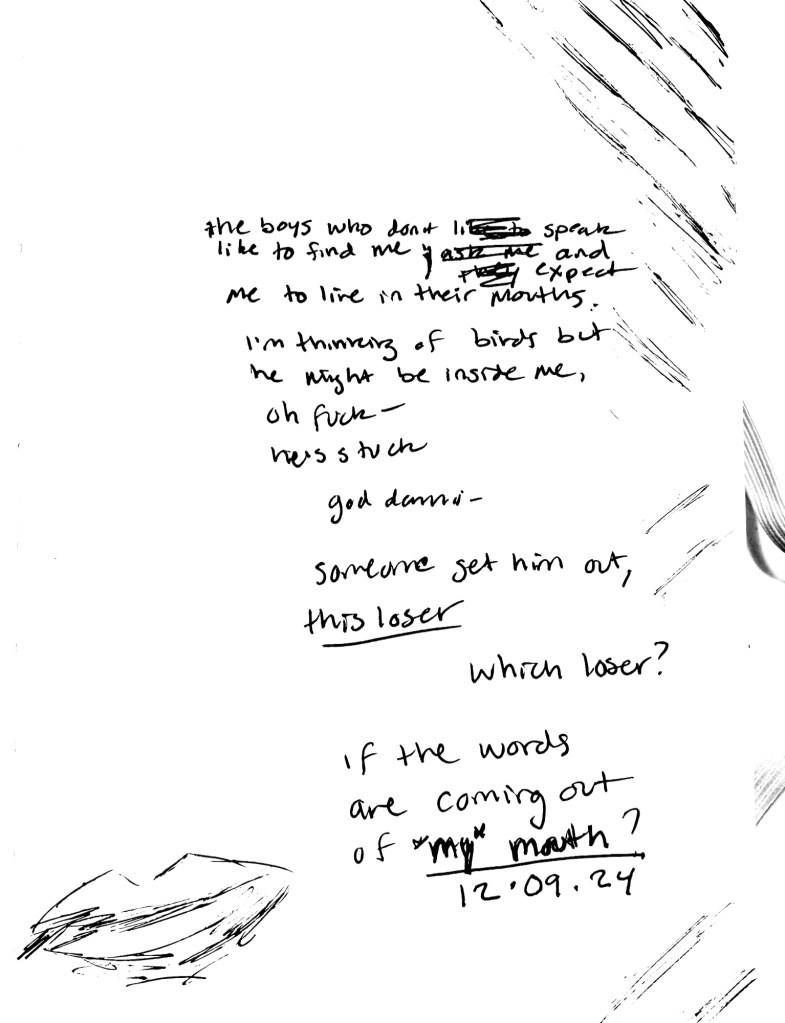 the boys who don't speak
like to find me, and
expect
me to live in their mouths.
I'm thinking of birds but
he might be inside me,
oh fuck—
he's stuck
god dammi-
someone get him out,
this loser
which loser?
if the words
are coming out
of *my* mouth?
12.09.24